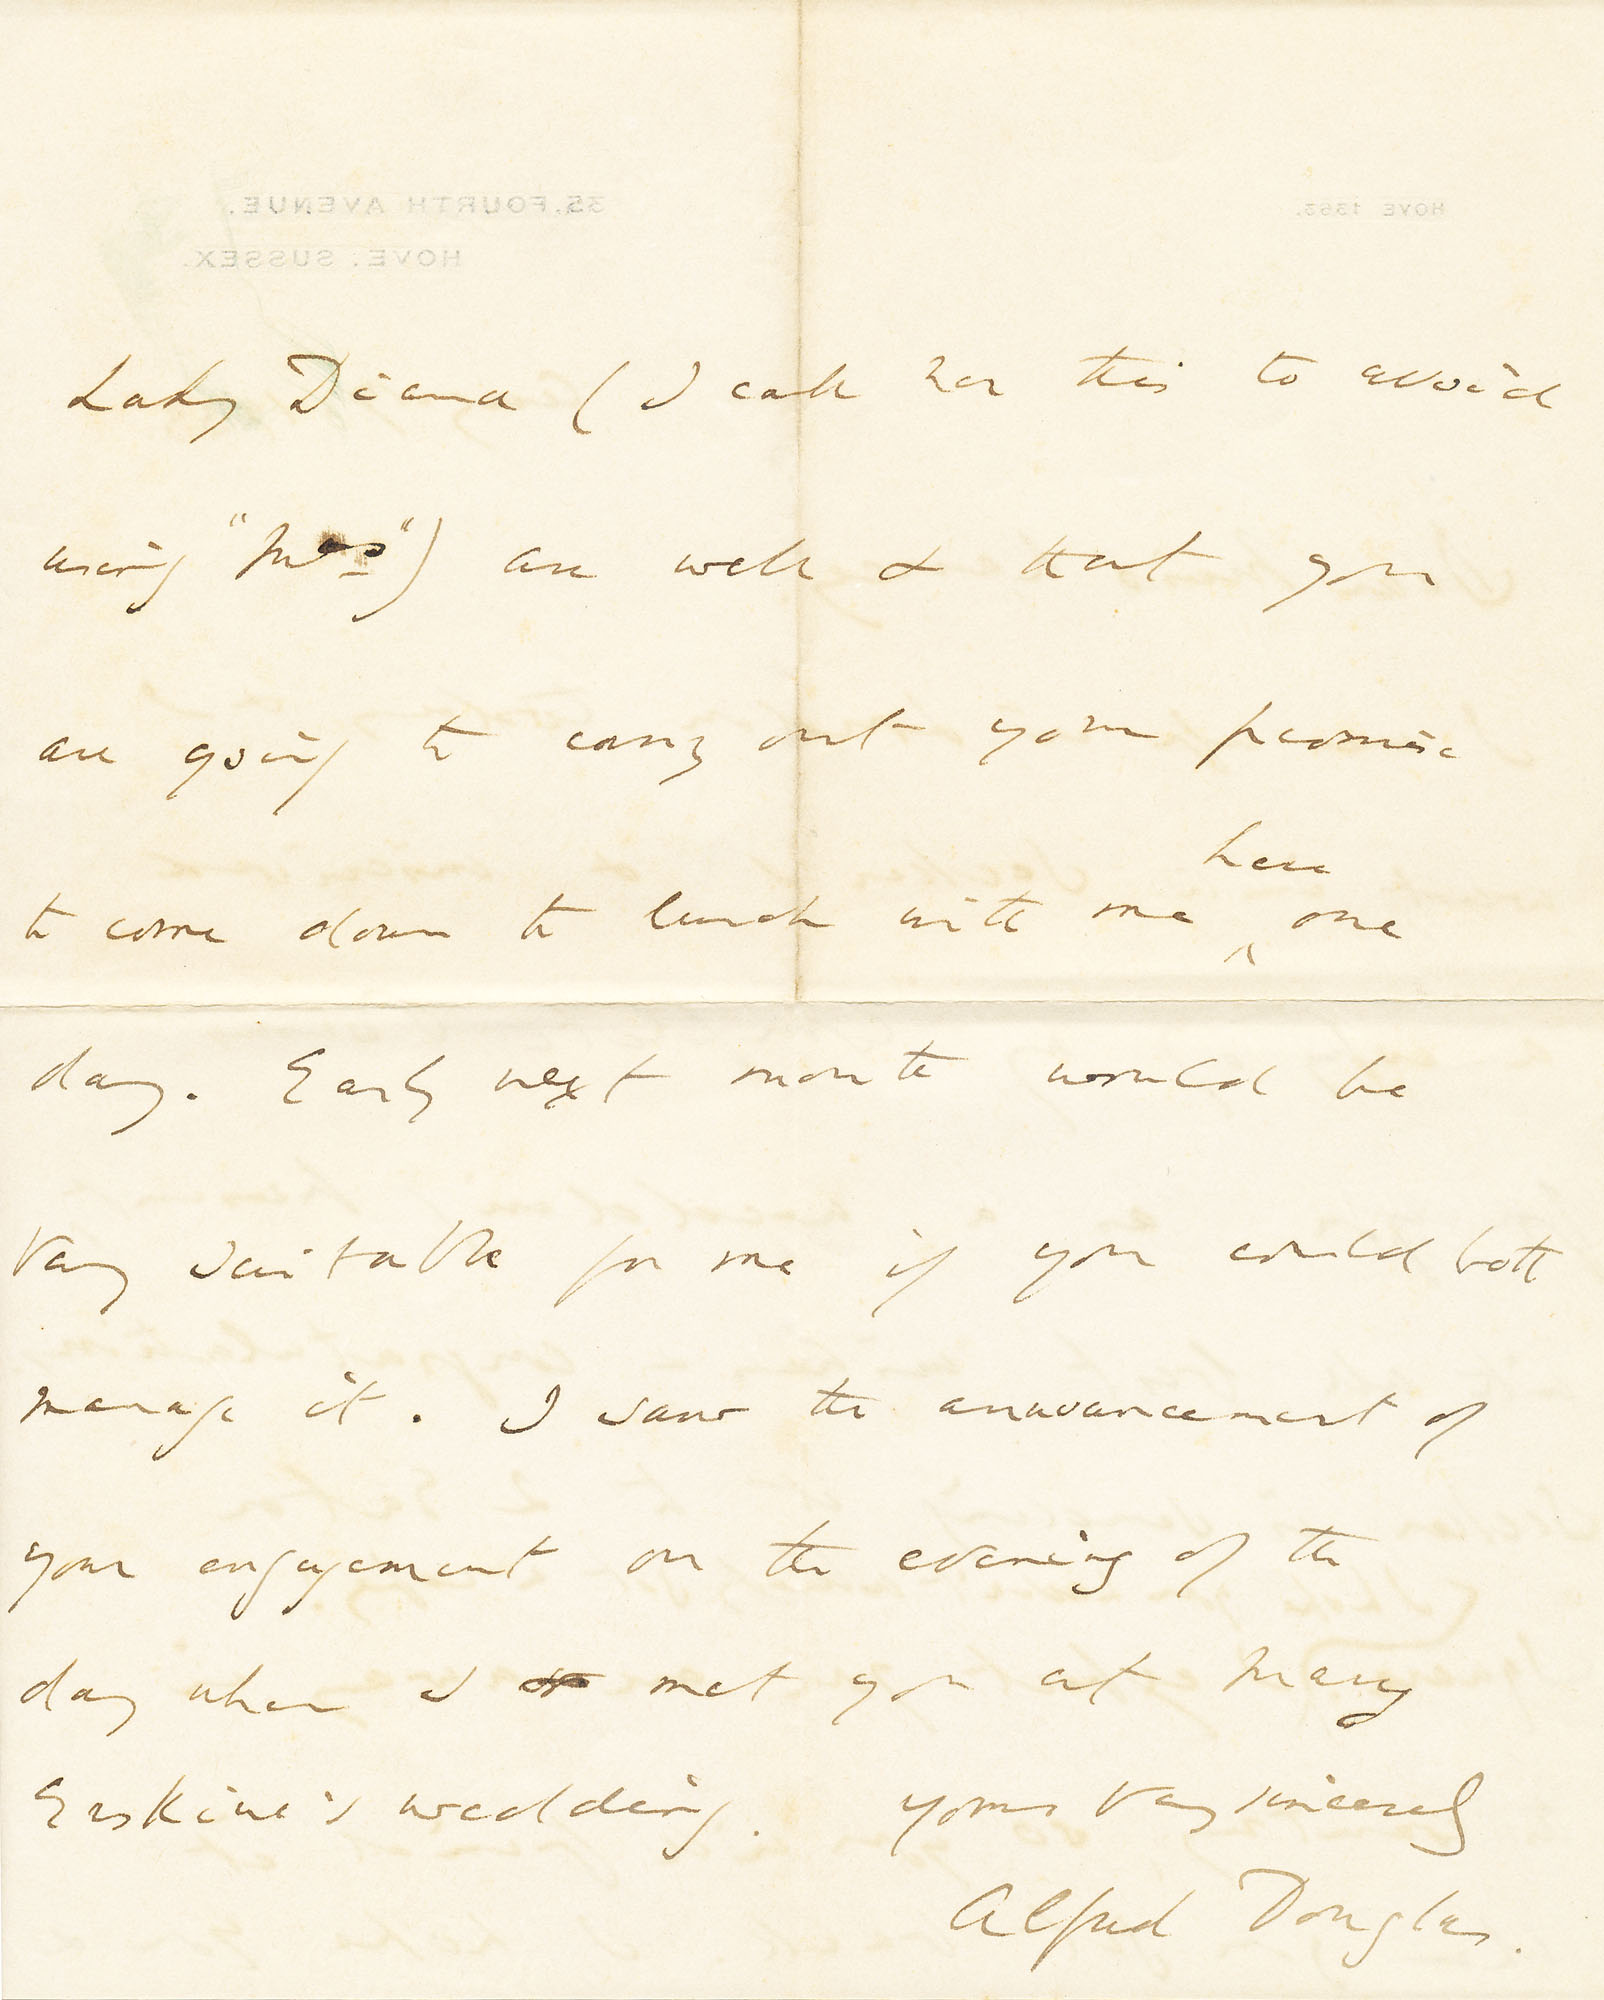 35, FOURTH AVENUE.
HOVE 1363.
HOVE. SUSSEX.
Lady Diana ( I call her this to avoid
using "Mrs") are well & that you
are going to carry out your promise
here
to come down to lunch with me ^ one
day. Early next month would be
very suitable for me if you could both
manage it. I saw the announcement of
your engagement on the evening of the
day when I met you at Mary
Erskine's wedding. Yours very sincerely
Alfred Douglas.